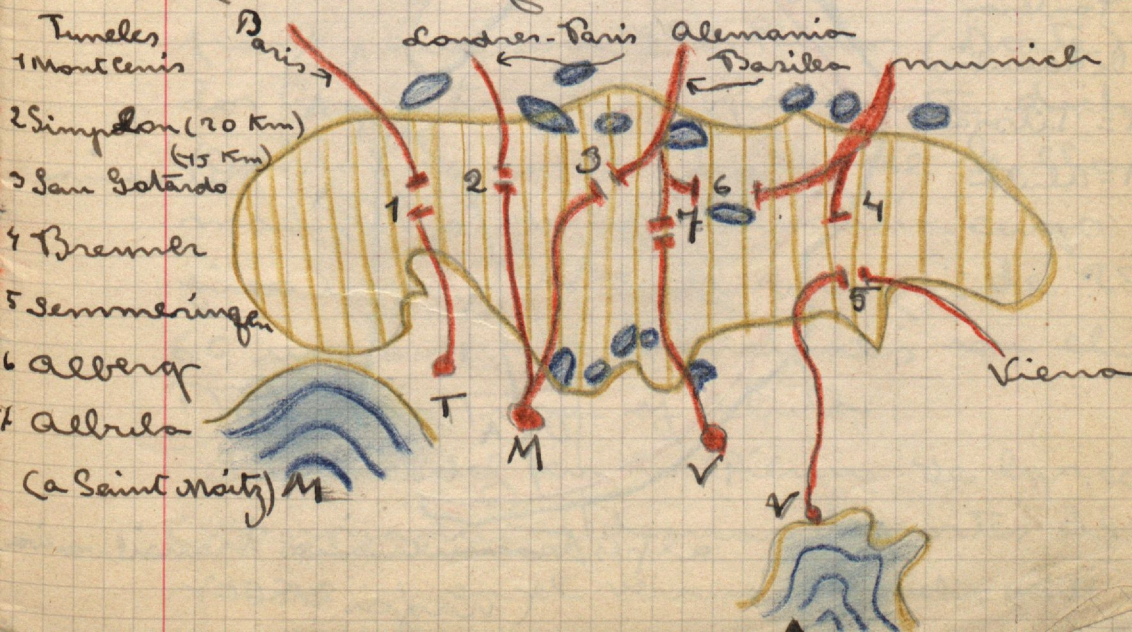 Tuneles
1 Montcenis
2 Simplon (20 Km)
(15 Km)
3 San Gotardo
4 Brenner
5 Semmeringen
6 Alberg
7 Albula
(a Saint Moitz)
Paris
Londres-Paris
Alemania
Basilea
Munich
1
2
3
6
7
4
5
T
M
V
V
Viena
M